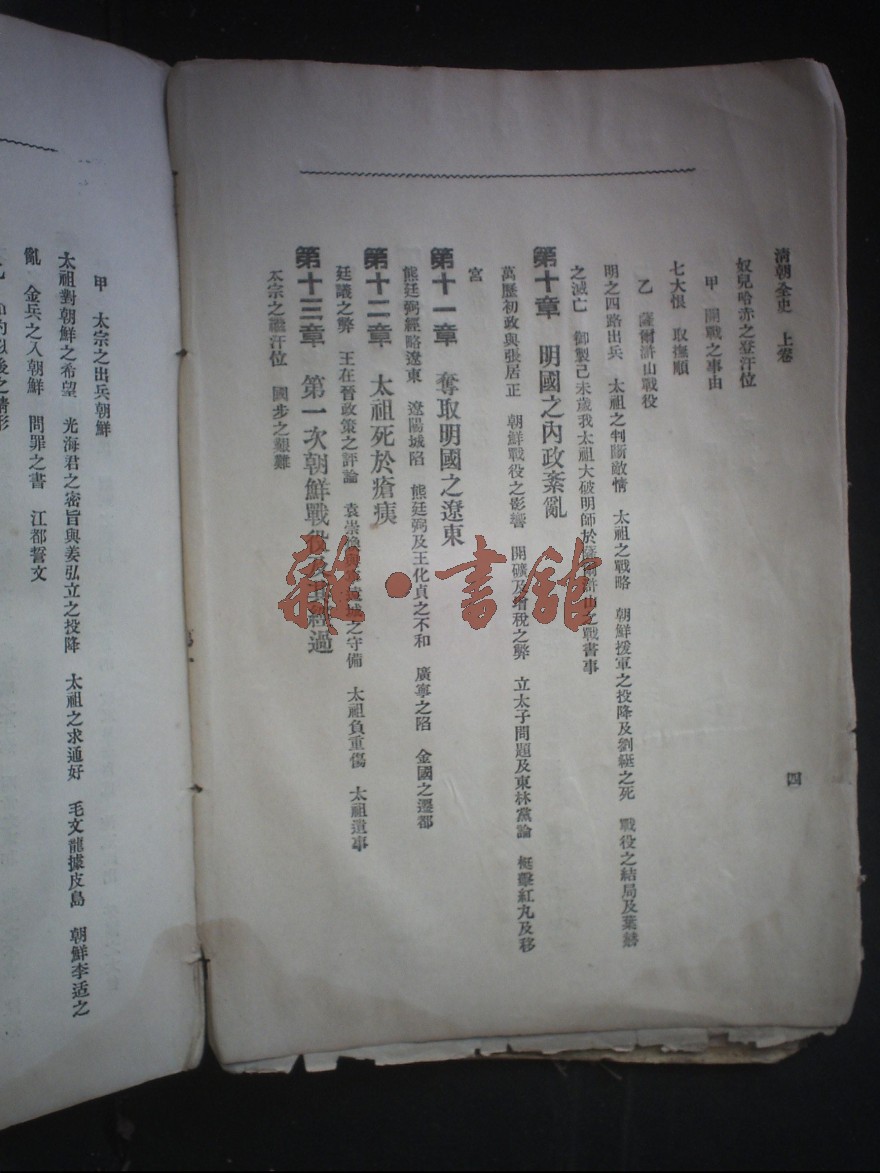 清朝全史　上卷
四
奴兒哈赤之登汗位
甲　開戰之事由
七大恨　取撫順
乙　薩爾滸山戰役
明之四路出兵　太祖之判斷敵情　太祖之戰略　朝鮮援軍之投降及劉綎之死　戰役之結局及葉赫
之滅亡　御製己未歲我太祖大破明師於薩爾滸山之戰書事
第十章　明國之內政紊亂
萬歷初政與張居正　朝鮮戰役之影響　開礦及增稅之弊　立太子問題及東林黨論　梃擊紅丸及移
宮
第十一章　奪取明國之遼東
熊廷弼經略遼東　遼陽城陷　熊廷弼及王化貞之不和　廣寧之陷　金國之遷都
第十二章　太祖死於瘡痍
廷議之弊　王在晉政策之評論　袁崇煥　之守備　太祖負重傷　太祖遺事
第十三章　第一次朝鮮戰役及其經過
太宗之繼汗位　國步之艱難
甲　太宗之出兵朝鮮
太祖對朝鮮之希望　光海君之密旨與姜弘立之投降　太祖之求通好　毛文龍據皮島　朝鮮李适之
亂　金兵之入朝鮮　問罪之書　江都誓文
雜·書館